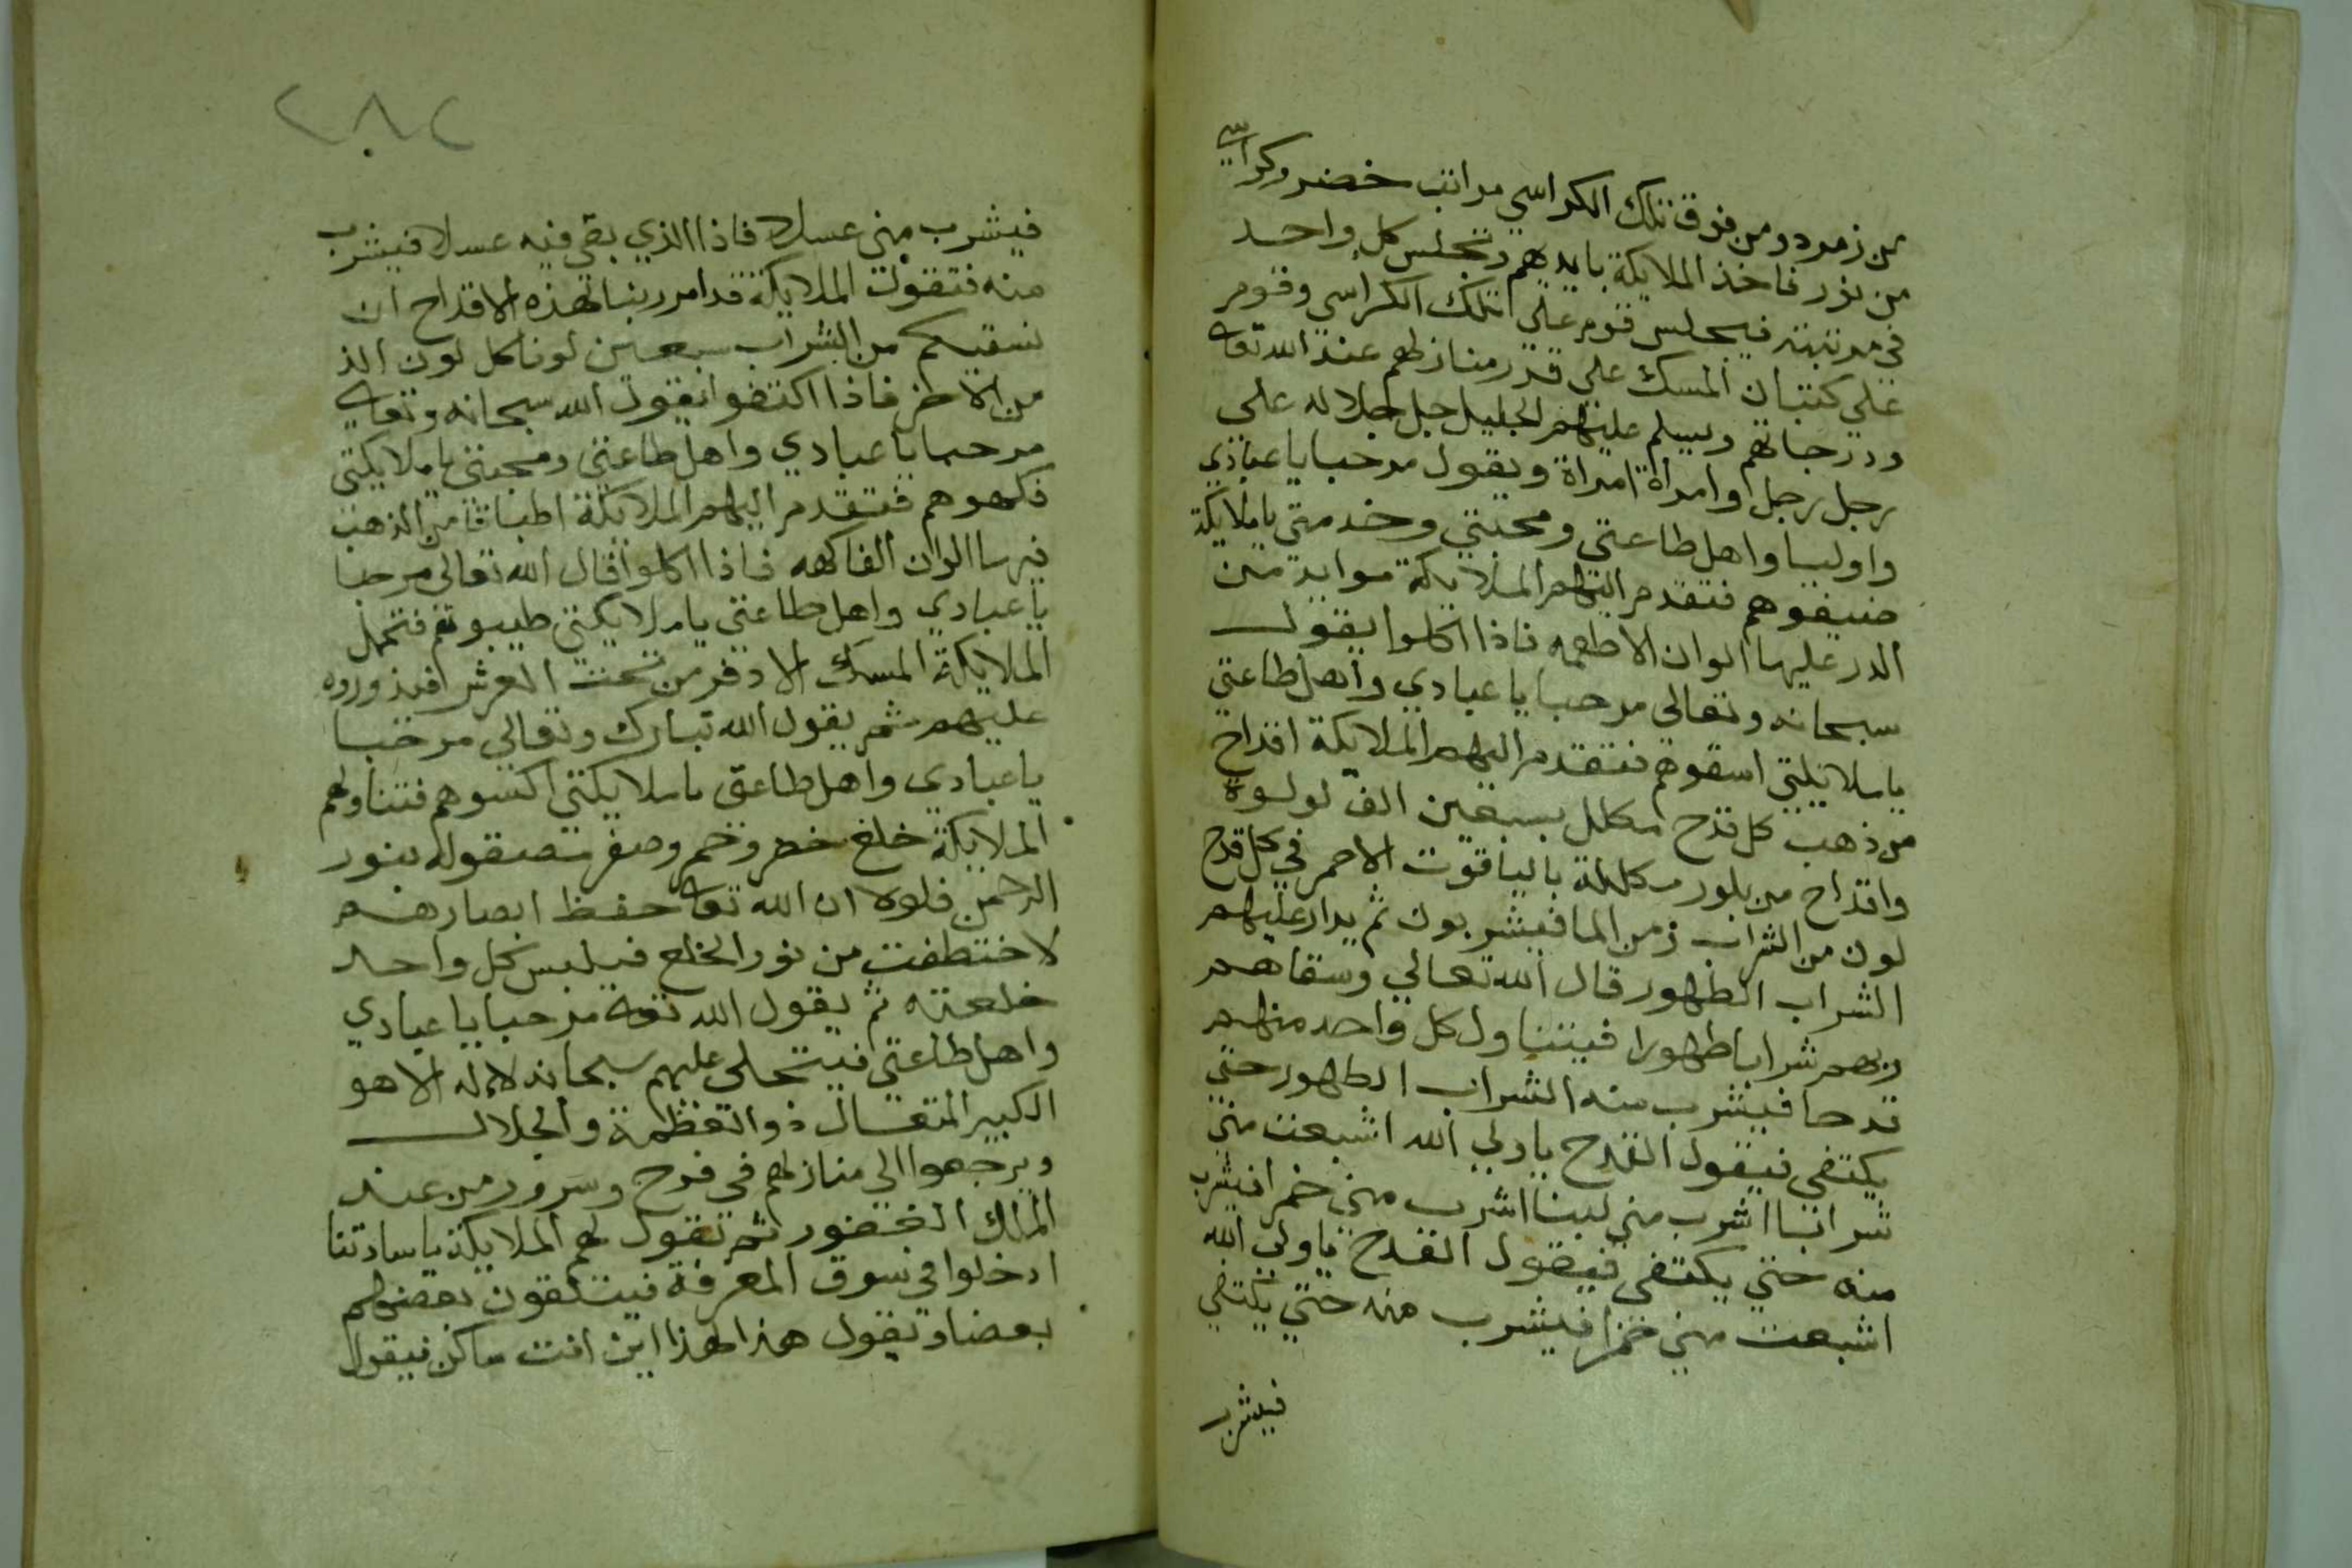 من زمرد ومن فوق تلك الكراسي مراتب خضر وكراسي
من نور فاخذ الملايكة بايديهم وتجلس كل واحد
في مرتبته فيجلس قوم علي تلك الكراسي وقوم
علي كثبان المسك علي قدر منازلهم عند الله تعالى
ودرجاتهم ويسلم عليهم الجليل جل جلاله على
رجل رجل او امراة امراة ويقول مرحبا يا عبادي
واوليا واهل طاعتي ومحبتي وخدمتي يا ملايكة
ضيفوهم فتقدم اليهم الملايكة موايد من
الدر عليها الوان الاطعمه فاذا اكلوا يقول
سبحانه وتعالى مرحبا يا عبادي واهل طاعتي
يا ملايكتي اسقوهم فتقدم اليهم الملايكة اقداح
من ذهب كل قدح مكلل بسبعين الف لولوة
واقداح من بلور مكلله بالياقوت الاحمر في كل قدح
لون من الشراب زمن الما فيشربون ثم يدار عليهم
الشراب الطهور قال الله تعالي وسقاهم
ربهم شرابا طهورا فيتناول كل واحد منهم
قدحا فيشرب منه الشراب الطهور حتي
يكتفي فيقول القدح يا ولي الله اشبعت مني
شرابا اشرب مني لبنا اشرب مني خمرا فيشرب
منه حتي يكتفي فيقول القدح يا ولي الله
اشبعت مني خمرا فيشرب منه حتي يكتفي
فيشرب
٢٨٢
فيشرب مني عسلا فاذا الذي بقي فيه عسلا فيشرب
منه فتقول الملايكة قد امر ربنا لهذه الاقداح ان
نسقيكم من الشراب سبعين لونا كل لون الذ
من الاخر فاذا اكتفوا يقول الله سبحانه وتعالى
مرحبا يا عبادي واهل طاعتي ومحبتي يا ملايكتي
فكهوهم فتقدم اليهم الملايكة اطباقا من الذهب
فيها الوان الفاكهه فاذا اكلوا قال الله تعالى مرحبا
يا عبادي واهل طاعتي يا ملايكتي طيبوهم فتحمل
الملايكة المسك الادفر من تحت العرش فيذوروه
عليهم ثم يقول الله تبارك وتعالي مرحبا
يا عبادي واهل طاعتي يا ملايكتي اكسوهم فتناولهم
الملايكة خلع خضر وحمر وصفر مصقوله بنور
الرحمن فلولا ان الله تعالى حفظ ابصارهم
لاختطفت من نور الخلع فيلبس كل واحد
خلعته ثم يقول الله تعالى مرحبا يا عبادي
واهل طاعتي فيتجلي عليهم سبحانه لا اله الا هو
الكبير المتعال ذو العظمة والجلال
ويرجعوا الي منازلهم في فرح وسرور من عند
الملك الغفور ثم تقول لهم الملايكة يا سادتنا
ادخلوا في سوق المعرفة فيتلقون بعضهم
بعضا ويقول هذا لهذا اين انت ساكن فيقول